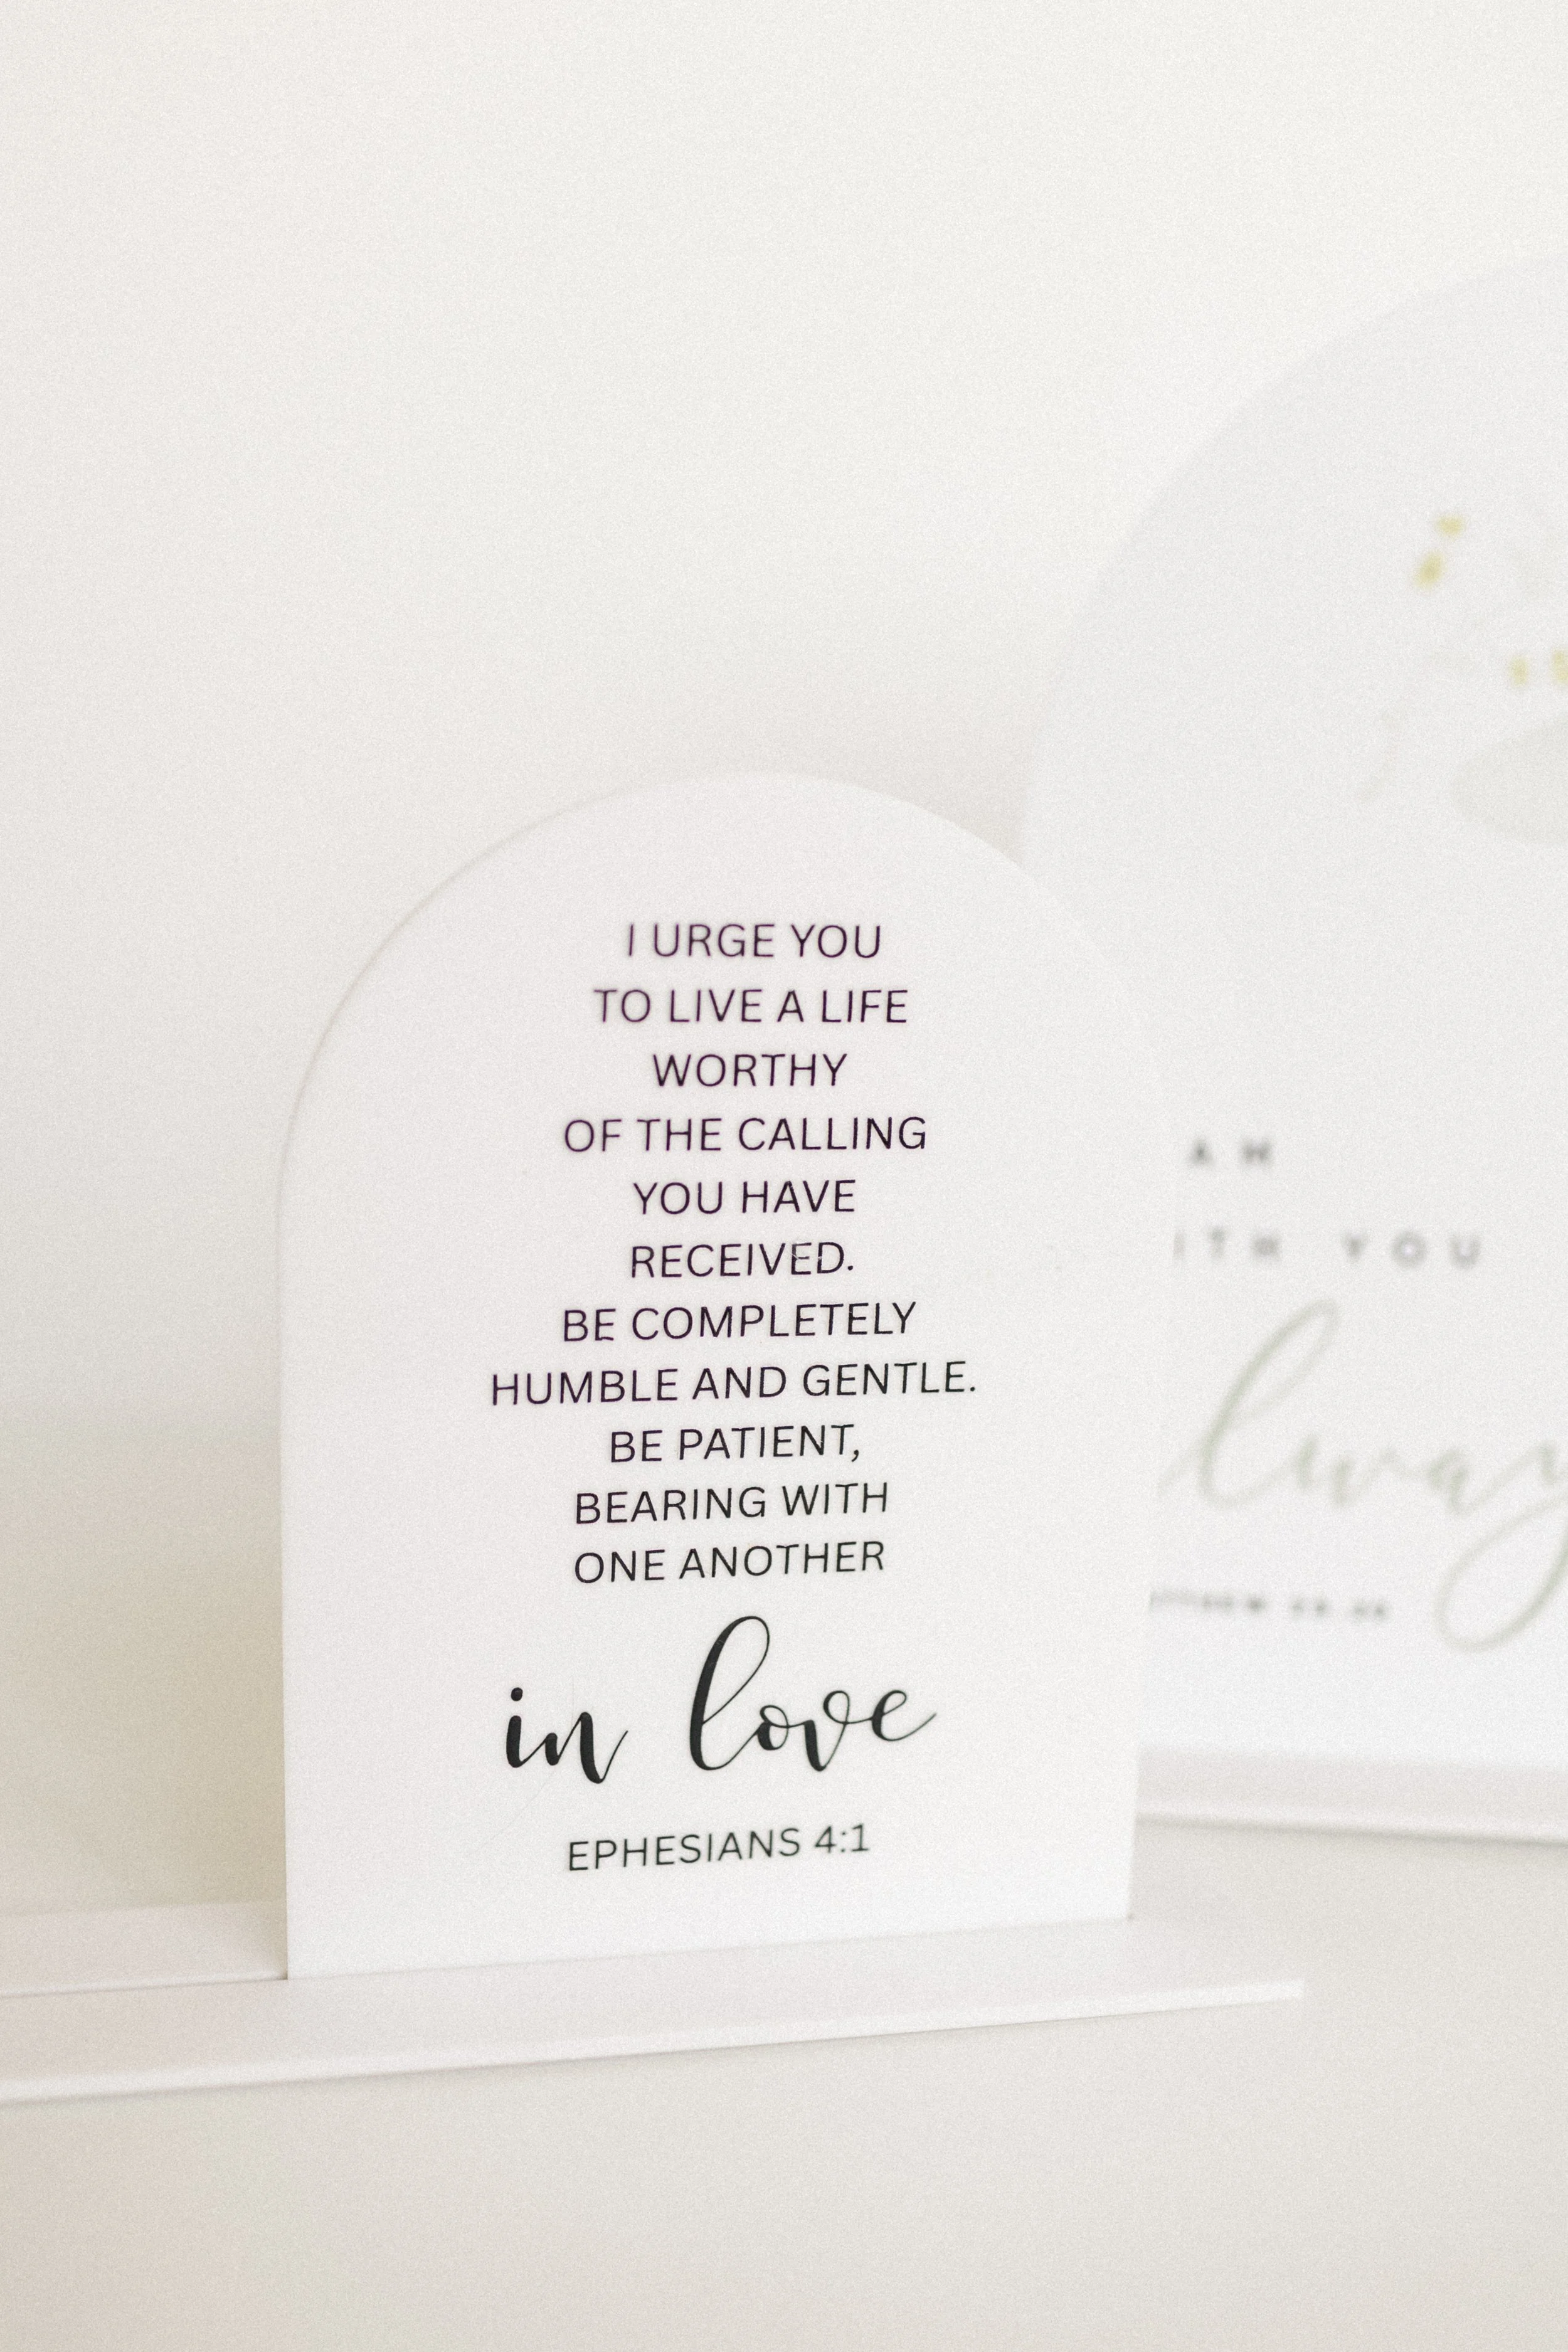 I URGE YOU
TO LIVE A LIFE
WORTHY
OF THE CALLING
YOU HAVE
RECEIVED.
BE COMPLETELY
HUMBLE AND GENTLE.
BE PATIENT,
BEARING WITH
ONE ANOTHER
in love
EPHESIANS 4:1
AM
ITH YOU
lway